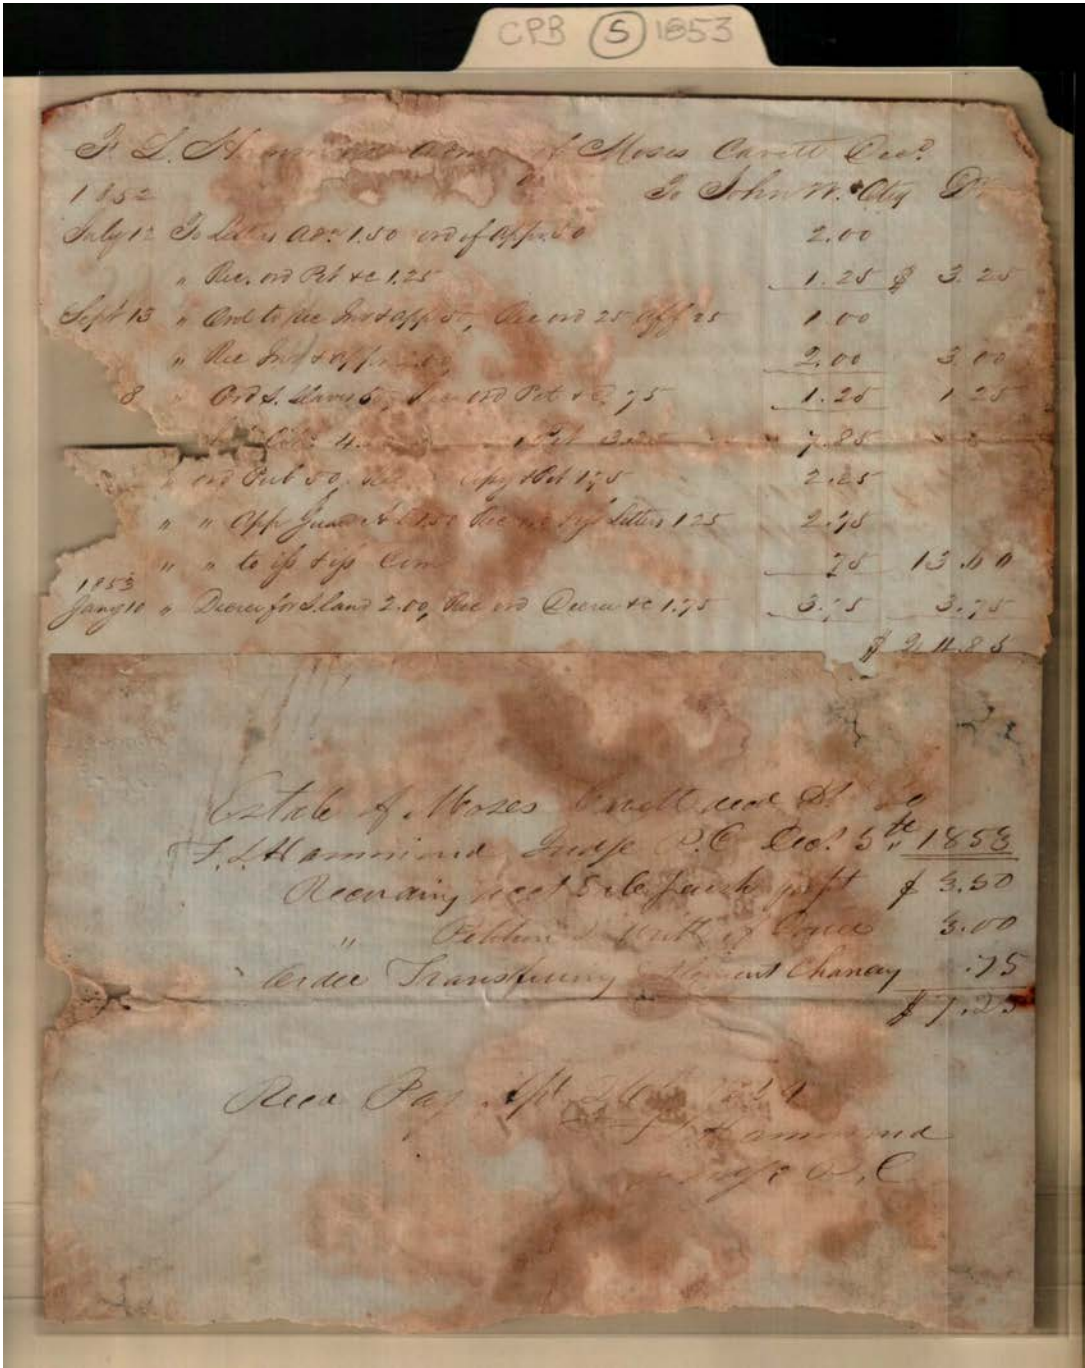 CPB 5 1853
F. L. Hammond Adm of Moses Cavett Decd
1852 To John W. Dr
July 12 To Letters Adm 1.50 ord of App. 50 2.00
" Rec. ord Pet &c 1.25 1.25 $ 3.25
Sept 13 " Ord to Rec Inv & app 50, Rec ord 25 aff 25 1.00
" Rec Inv & app 2.00 2.00 3.00
8 " Ord S. Slaves 50, ord Pet &c 75 1.25 1.25
4. Pet 7.85
" ord Pub 50, Copy & Pet 1.75 2.25
" " App Guar Ad L 1.50 Rec Letters 1.25 2.75
" " to iss & iss Com 75 13.60
1853
Jany 10 " Decree for S. land 2.00, Rec ord Decree &c 1.75 3.75 3.75
$ 24.85
Estate of Moses Cavett decd Dr to
F. L. Hammond Judge P.C Dec. 5th 1853
Recording acct Sale perish propt $ 3.50
" Petition & Writt of 3.00
Order Transfering Chancy .75
$ 7.25
Recd Pay
Hammond
Judge P. C